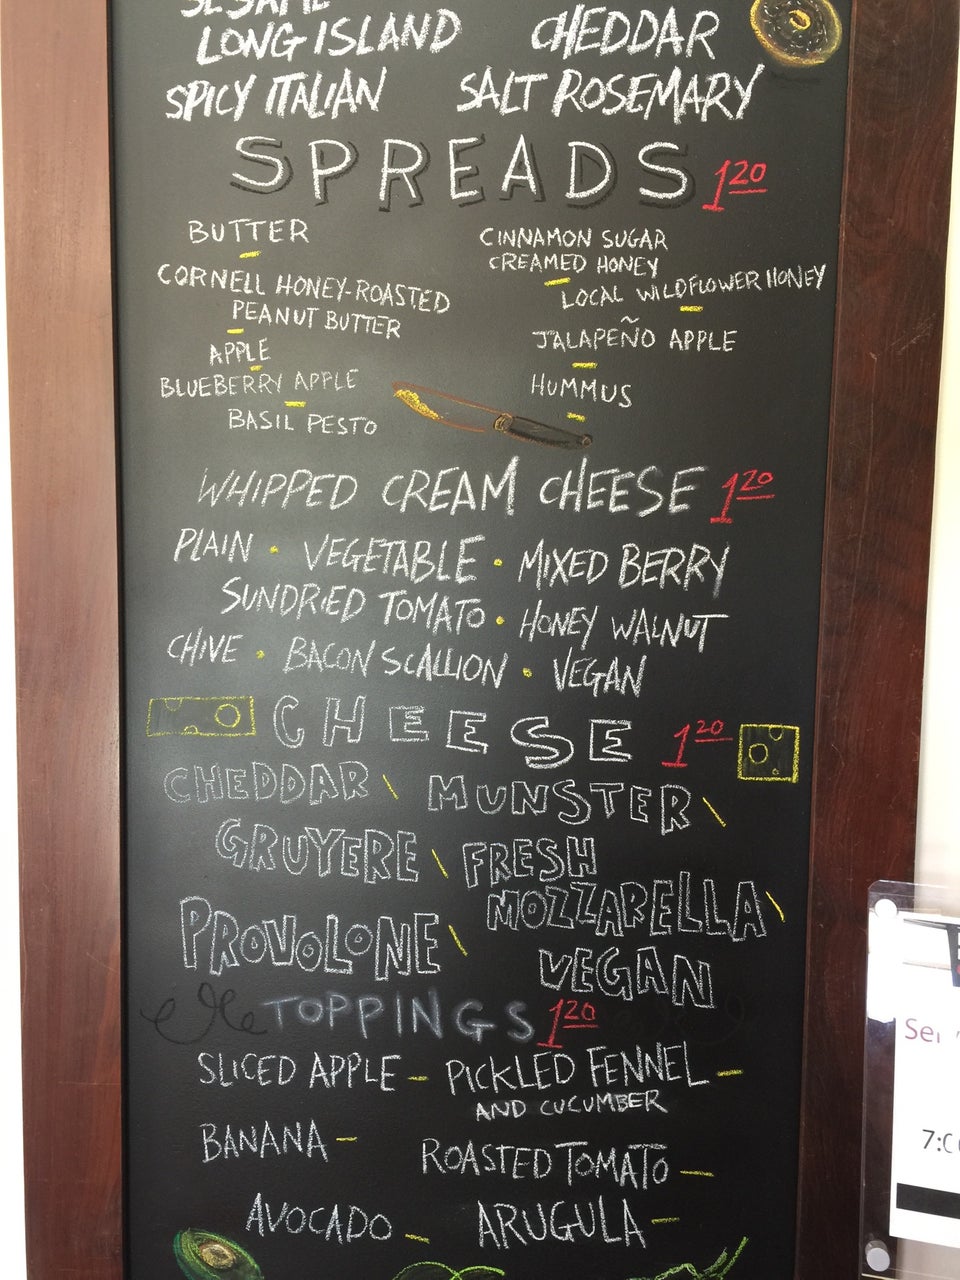 SESAME
LONG ISLAND CHEDDAR
SPICY ITALIAN SALT ROSEMARY
SPREADS 1 20
BUTTER
CORNELL HONEY-ROASTED
PEANUT BUTTER
APPLE
BLUEBERRY APPLE
BASIL PESTO
CINNAMON SUGAR
CREAMED HONEY
LOCAL WILDFLOWER HONEY
JALAPEÑO APPLE
HUMMUS
WHIPPED CREAM CHEESE 1 20
PLAIN · VEGETABLE · MIXED BERRY
SUNDRIED TOMATO · HONEY WALNUT
CHIVE · BACON SCALLION · VEGAN
CHEESE 1 20
CHEDDAR \ MUNSTER \
GRUYERE \ FRESH
MOZZARELLA \
PROVOLONE \
VEGAN
TOPPINGS 1 20
SLICED APPLE – PICKLED FENNEL –
AND CUCUMBER
BANANA –
ROASTED TOMATO –
AVOCADO – ARUGULA –